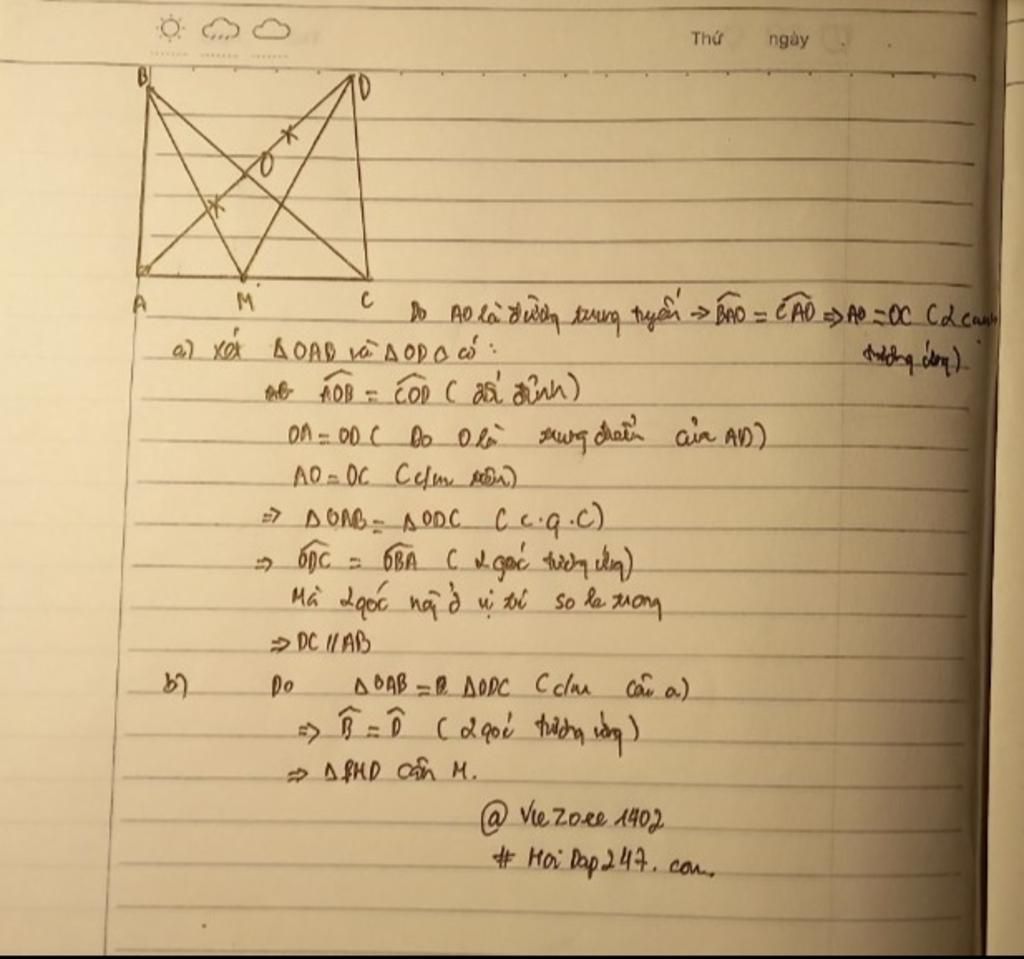 Thứ ngày
B D
O
A M C
Do AO là đường trung tuyến → BAO = CAO ⇒ AO = OC (2 cạnh tương ứng)
a) Xét ΔOAB và ΔODC có:
AOB = COD (đối đỉnh)
OA = OD (Do O là trung điểm của AD)
AO = OC (c/m trên)
⇒ ΔOAB = ΔODC (c.g.c)
⇒ ODC = OBA (2 góc tương ứng)
Mà 2 góc này ở vị trí so le trong
⇒ DC // AB
b) Do ΔOAB = ΔODC (c/m câu a)
⇒ B = D (2 góc tương ứng)
⇒ ΔBMD cân M.
@ Vie Zoee 1402
# Hoi Dap 247. com.